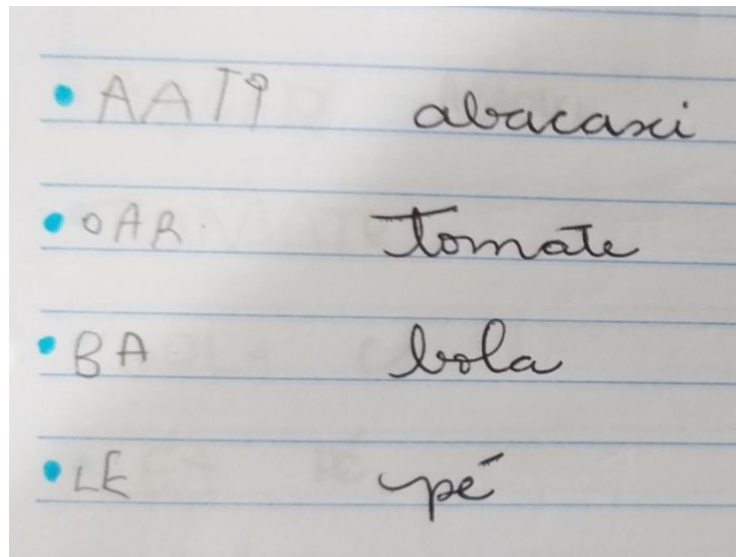 • AATI abacaxi
• OAR tomate
• BA bola
• LE pé